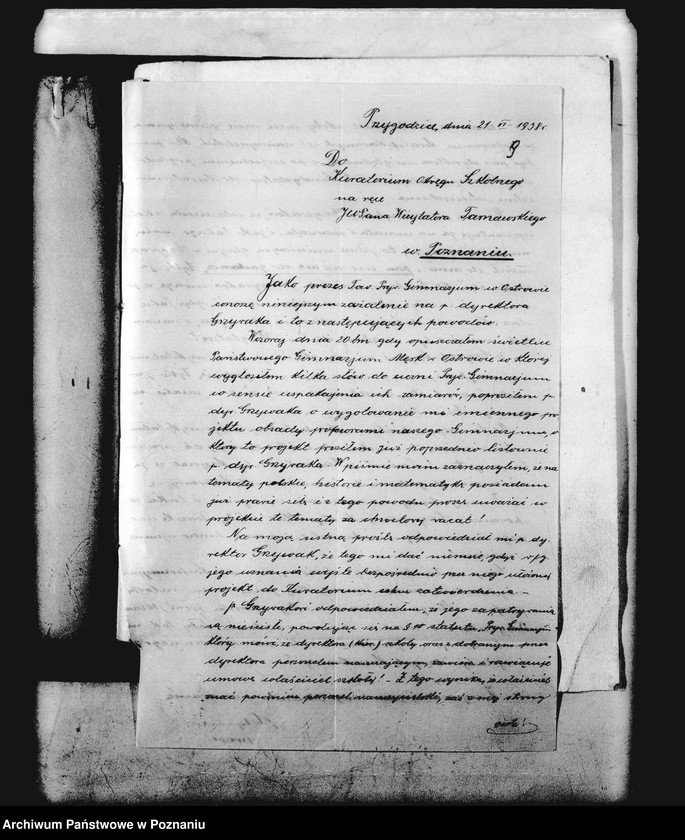 Przygodzice, dnia 21-VI-1938 r
9
Do
Kuratorium Okręgu Szkolnego
na ręce
JWPana Wizytatora Tarnawskiego
w Poznaniu.
Jako prezes Tow. Pryw. Gimnazjum w Ostrowie
wnoszę niniejszym zażalenie na p. dyrektora
Grzywaka i to z następujących powodów.
Wczoraj dnia 20 bm. gdy opuszczałem świetlicę
Państwowego Gimnazjum Męsk. w Ostrowie w której
wygłosiłem kilka słów do uczni Pryw. Gimnazjum
w sensie uspakajenia ich zamiarów, poprosiłem p.
dyr. Grzywaka o wygotowanie mi imiennego pro
jektu obsady profesorami naszego Gimnazjum, o
który to projekt prosiłem już poprzednio listownie
p. dyr. Grzywaka. W piśmie moim zaznaczyłem, że na
tematy polskie, historię i matematykę posiadam
już prawie siły, i z tego powodu proszę uważać w
projekcie te tematy za chwilowy vacat!
Na moją ustną prośbę odpowiedział mi p. dy-
rektor Grzywak, że tego mi dać niemoże, gdyż
jego uznania wyśle bezpośrednio przez niego ułożony
projekt do Kuratorium celem zatwierdzenia.-
p. Grzywakowi odpowiedziałem, że jego zapatrywania
są nieścisłe, powołując się na § 10 statutu, Pryw. Gimnazjum
który mówi, że dyrektora (kier.) szkoły oraz z dobranym przez
dyrektora personelem nauczającym, zawiera i rozwiązuje
umowę właściciel szkoły! - Z tego wynika, że właściciel
znać powinien personel nauczycielski, zaś z mej strony